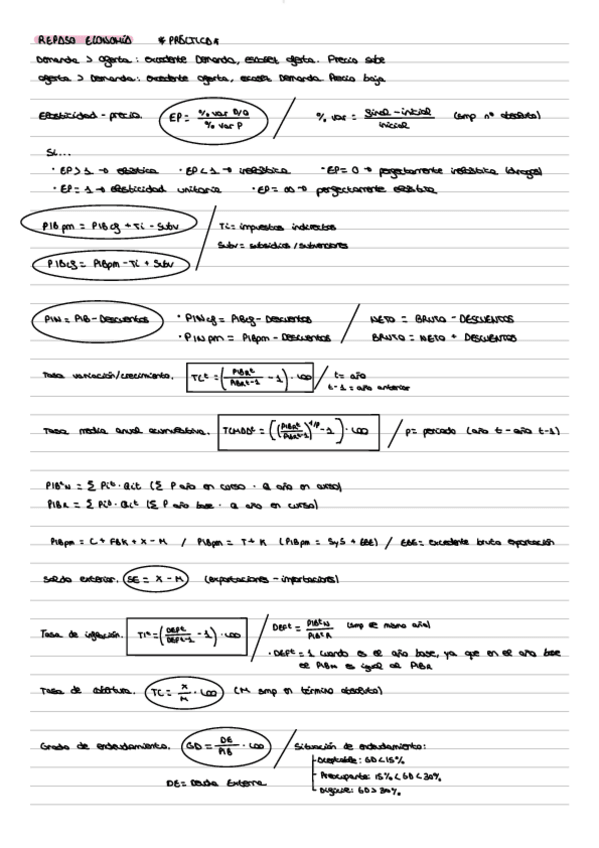 REPASO ECONOMÍA * PRÁCTICO *
Demanda > oferta: excedente Demanda, escasez oferta. Precio sube
oferta > Demanda: excedente oferta, escasez Demanda. Precio baja
Elasticidad-precio. EP = % var D/O / % var P / % var = final - inicial / inicial (smp nº absoluto)
Si...
· EP > 1 → elástica · EP < 1 → inelástica · EP = 0 → perfectamente inelástica (drogas)
· EP = 1 → elasticidad unitaria · EP = ∞ → perfectamente elástica
PIBpm = PIBcf + Ti - Subv / Ti = impuestos indirectos
Subv = subsidios / subvenciones
PIBcf = PIBpm - Ti + Subv
PIN = PIB - Descuentos · PINcf = PIBcf - Descuentos / NETO = BRUTO - DESCUENTOS
· PINpm = PIBpm - Descuentos BRUTO = NETO + DESCUENTOS
Tasa variación/crecimiento. TCt = (PIBRt / PIBRt-1 - 1) · 100 / t = año
t-1 = año anterior
Tasa media anual acumulativa. = [(PIBRt / PIBRt-1)^1/p - 1] · 100 / p = periodo (año t - año t-1)
PIBtN = Σ Pit · Qit (Σ P año en curso · Q año en curso)
PIBR = Σ Pi0 · Qit (Σ P año base · Q año en curso)
PIBpm = C + FBK + X - M / PIBpm = T + K (PIBpm = SyS + EBE) / EBE = excedente bruto explotación
Saldo exterior. SE = X - M (exportaciones - importaciones)
Tasa de inflación. TIt = (DEFt / DEFt-1 - 1) · 100 / DEFt = PIBtN / PIBtR (smp el mismo año)
· DEFt = 1 cuando es el año base, ya que en el año base
el PIBN es igual al PIBR
Tasa de cobertura. TC = X / M · 100 (M smp en término absoluto)
Grado de endeudamiento. GD = DE / PIB · 100 / Situación de endeudamiento:
- Aceptable: GD < 15%
- Preocupante: 15% < GD < 30%
DE = Deuda Externa - : GD > 30%